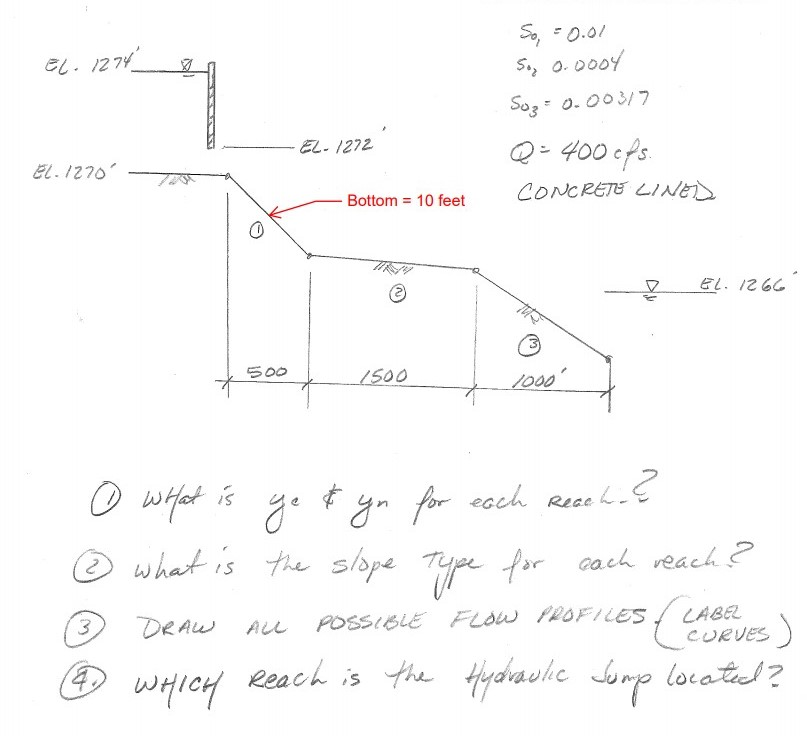 So₁ = 0.01
EL. 1274'
So₂ 0.0004
So₃ = 0.00317
EL. 1272'
Q = 400 cfs.
EL. 1270'
CONCRETE LINED
Bottom = 10 feet
①
②
EL. 1266'
③
500
1500
1000'
① What is yc & yn for each Reach.?
② what is the slope Type for each reach?
③ DRAW ALL POSSIBLE FLOW PROFILES. (LABEL CURVES)
④. WHICH Reach is the Hydraulic Jump located?